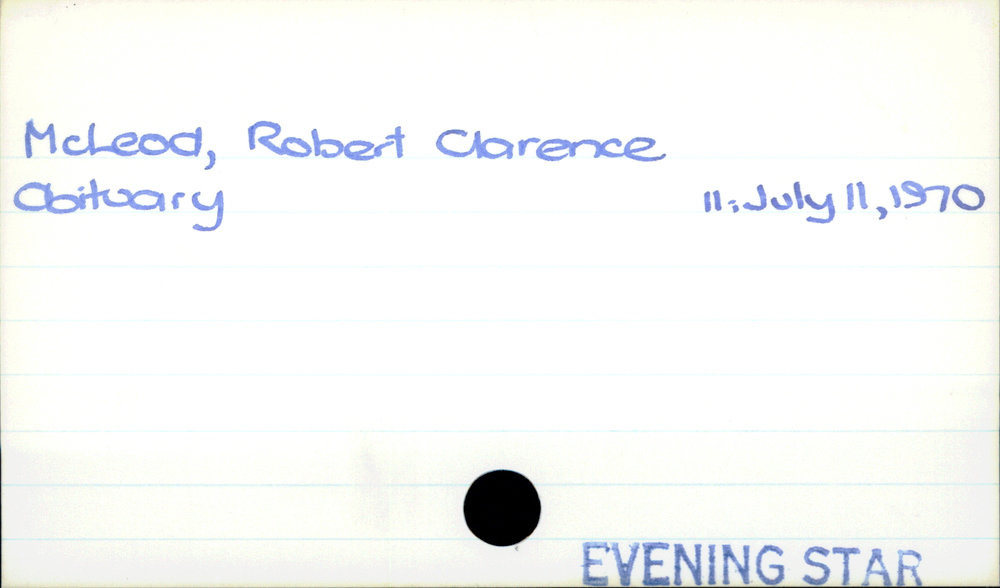 McLeod, Robert Clarence
Obituary 11:July 11, 1970
EVENING STAR